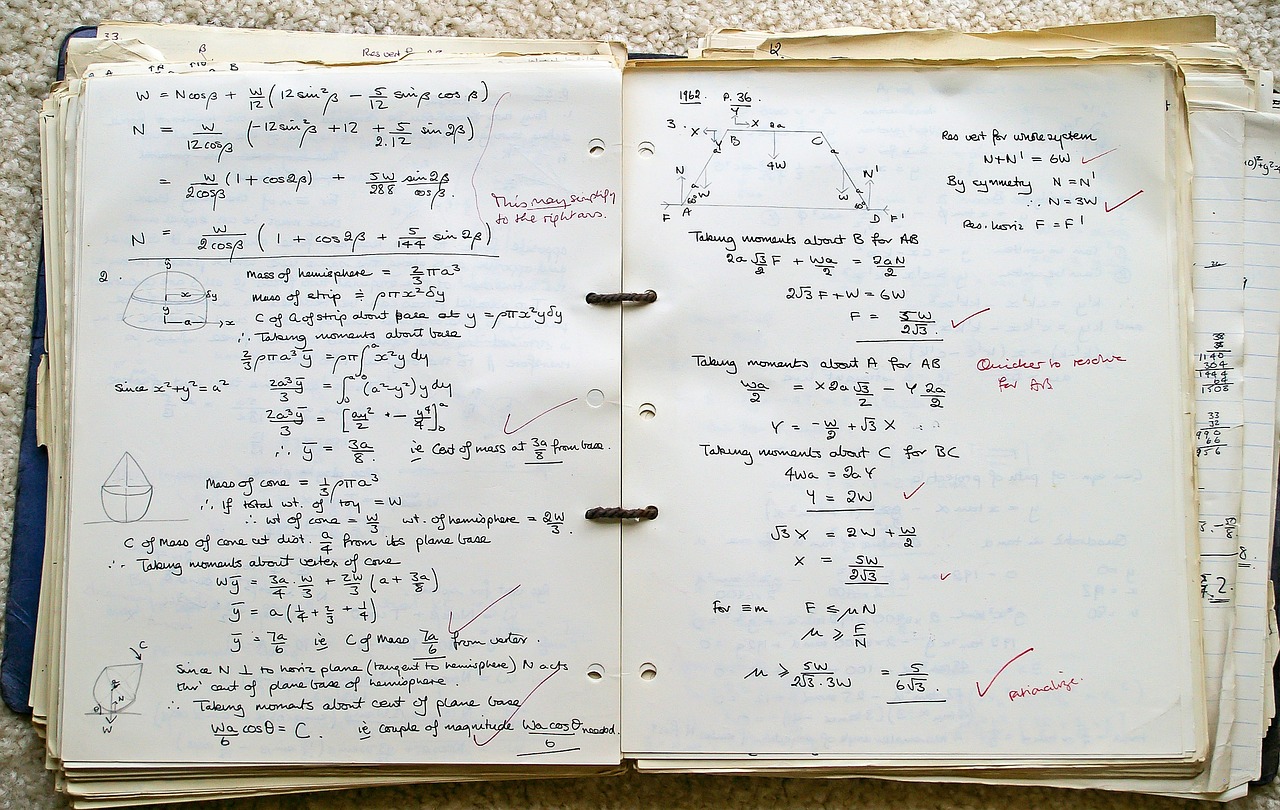 33.
β
Res vert
A B
W = Ncosβ + W/12 (12sin²β − 5/12 sinβ cosβ)
N = W/12cosβ (−12sin²β + 12 + 5/2.12 sin2β)
= W/2cosβ (1 + cos2β) + 5W/288 sin2β/cosβ.
This may simplify
to the right ans.
N = W/2cosβ (1 + cos2β + 5/144 sin2β)
2.
y
x δy
y
a x
Mass of hemisphere = 2/3 πa³
Mass of strip ≑ ρπx²δy
C of G of strip about base at y = ρπx²yδy
∴ Taking moments about base
2/3 ρπa³ȳ = ρπ∫₀ᵃ x²y dy
Since x²+y² = a² 2a³ȳ/3 = ∫₀ᵃ (a²−y²) y dy
2a³ȳ/3 = [ay²/2 − y⁴/4]₀ᵃ
∴ ȳ = 3a/8 ie Cent of mass at 3a/8 from base.
Mass of cone = 1/3 ρπa³
∴ If total wt. of toy = W
∴ wt of cone = W/3 wt. of hemisphere = 2W/3.
C of Mass of cone at dist. a/4 from its plane base
∴ Taking moments about vertex of cone
Wȳ = 3a/4 . W/3 + 2W/3 (a + 3a/8)
ȳ = a(1/4 + 2/3 + 1/4)
ȳ = 7a/6 ie C of Mass 7a/6 from vertex.
C
N
θ
W
Since N ⊥ to horiz plane (tangent to hemisphere) N acts
thro' cent of plane base of hemisphere.
∴ Taking moments about cent of plane base
Wa/6 cosθ = C. ie couple of magnitude Wa cosθ/6 needed.
12.
1962. P. 36.
3. Y
X X 2a
B C
Y a 4W a
N a W W a N'
60° 60°
F A D F'
Res vert for whole system
N+N' = 6W
By symmetry N = N'
∴ N = 3W
Res. horiz F = F'
Taking moments about B for AB
2a √3/2 F + Wa/2 = 2aN/2
2√3 F + W = 6W
F = 5W/2√3.
Taking moments about A for AB
Quicker to resolve
for AB
Wa/2 = X 2a √3/2 − Y 2a/2
Y = −W/2 + √3 X
Taking moments about C for BC
4Wa = 2aY
Y = 2W
√3 X = 2W + W/2
X = 5W/2√3
For ≡m F ≤ μN
μ ≥ F/N
μ ≥ 5W/2√3.3W = 5/6√3.
rationalize.
38
38
1140
304
1444
64
1508
33
32
990
66
956